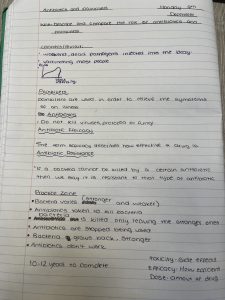 Antibiotics and Painkillers Monday 9th
December
and compare the role of antibiotics and
painkillers
Vaccination
• Weakened, dead pathogens injected into the body
• Vaccinating most people
Painkillers
Painkillers are used in order to relieve the symptoms
of an illness
Antibiotics
• Do not kill viruses, protozoa or fungi
Antibiotic Efficacy
The term efficacy describes how effective a drug is
Antibiotic Resistance
If a bacteria cannot be killed by a certain antibiotic
then we may it is resistant to that type of antibiotic
Practice Zone
• Bacteria varies (stronger and weaker)
• Antibiotics taken to kill bacteria
• bacteria is killed only leaving the stronger ones
• Antibiotics are stopped being used
• Bacteria grows back, stronger
• Antibiotics don't work
10-12 years to complete
Toxicity: Side effects
Efficacy: How efficient
Dose: amount of drug